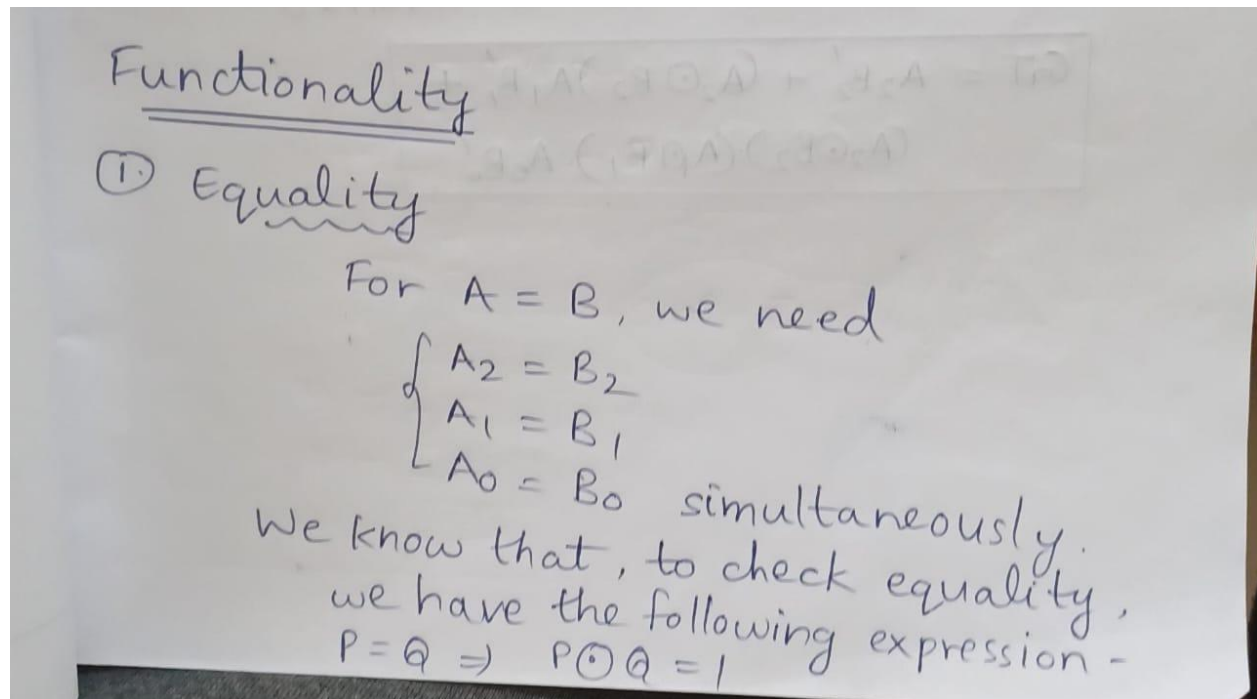 Functionality
① Equality
For A = B, we need
{ A2 = B2
A1 = B1
A0 = B0 simultaneously.
We know that, to check equality,
we have the following expression -
P = Q ⇒ P⊙Q = 1